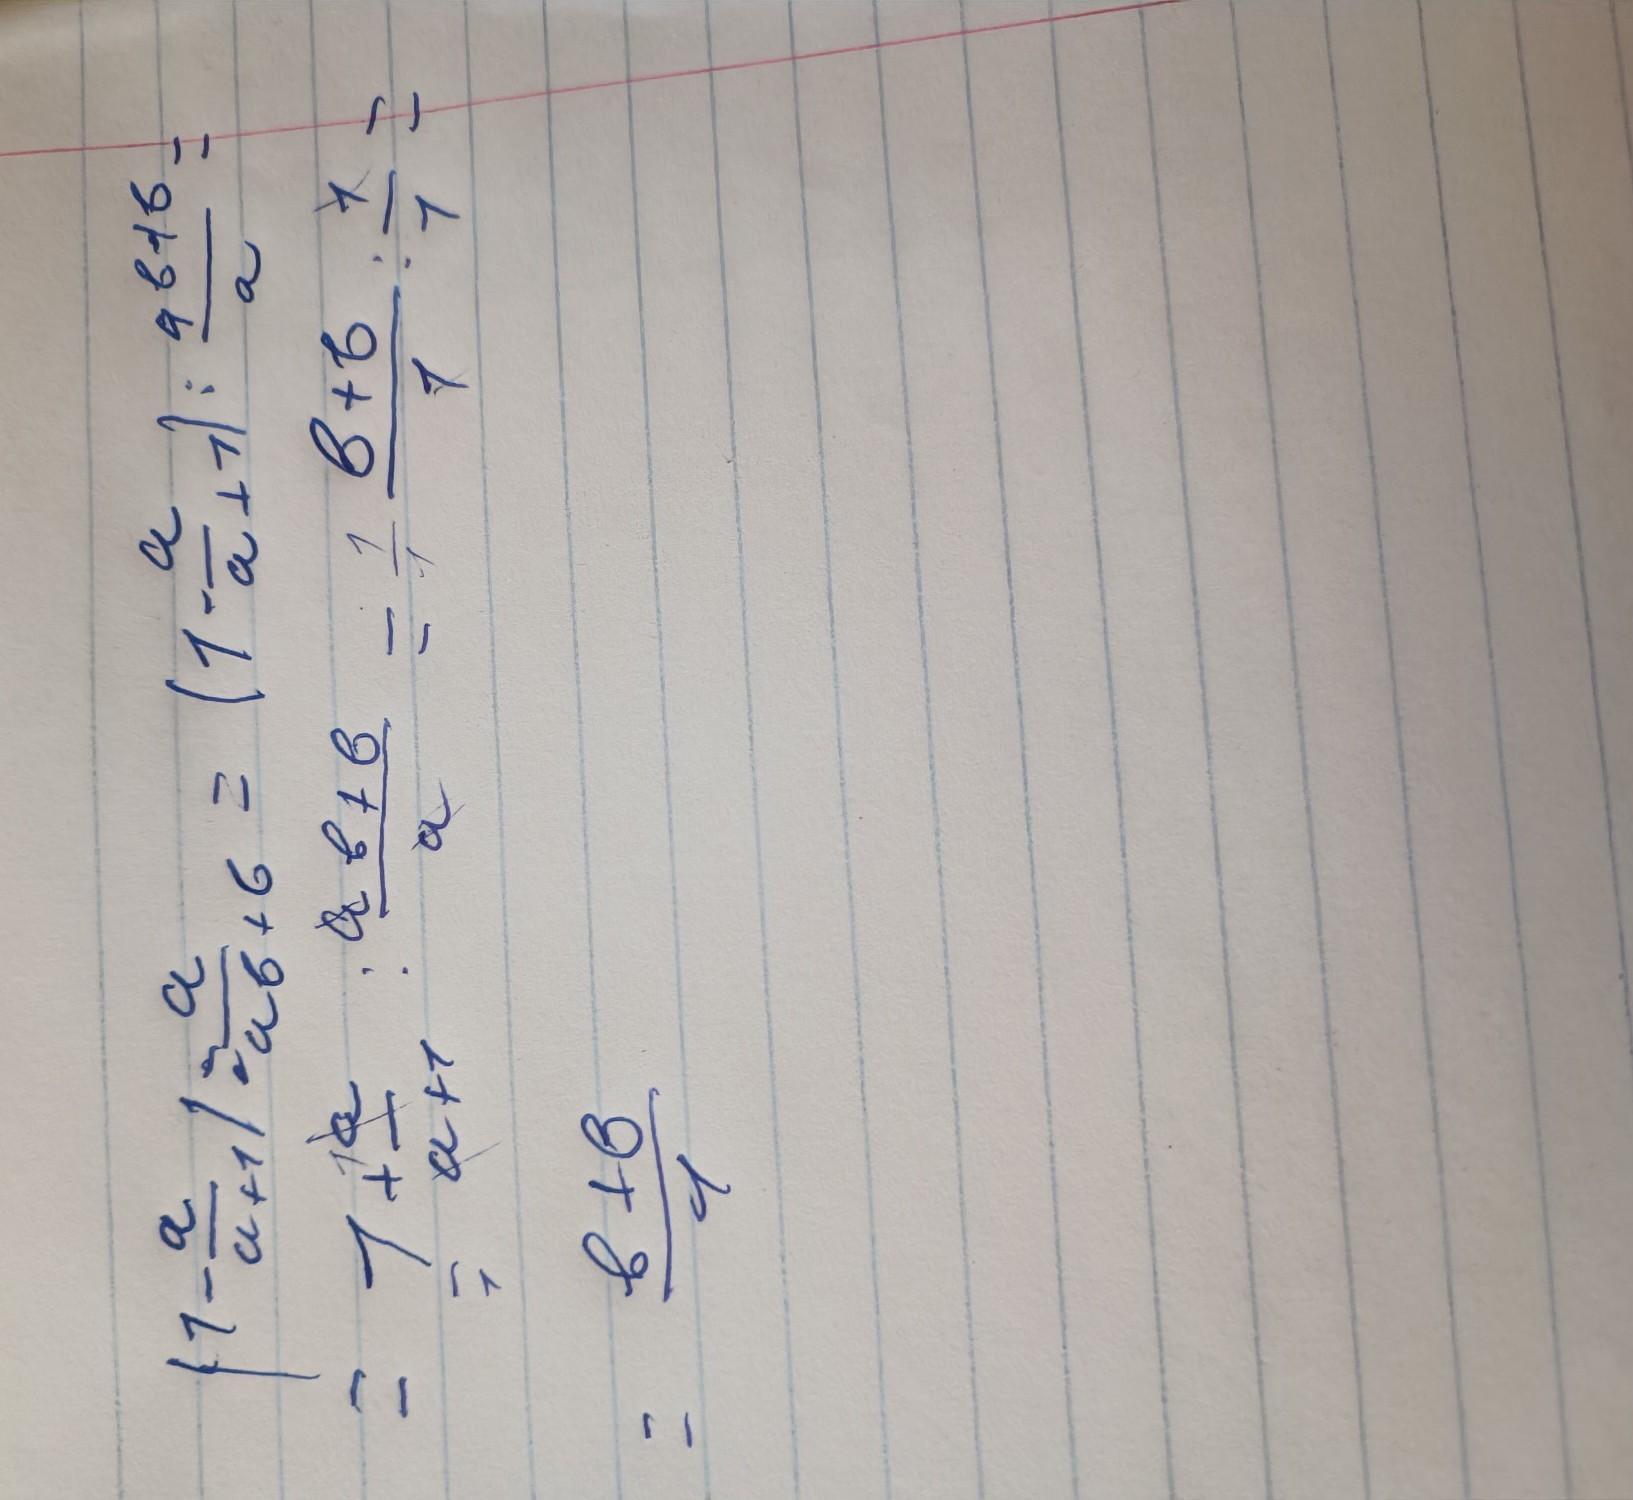 (1 - a/(a+1)) : a/(ab+b) = (1 - a/(a+1)) : (ab+b)/a =
= 1 + a/(a+1) : (ab+b)/a = 1/1 (b+b)/1 : 1/1 =
= (b+b)/1